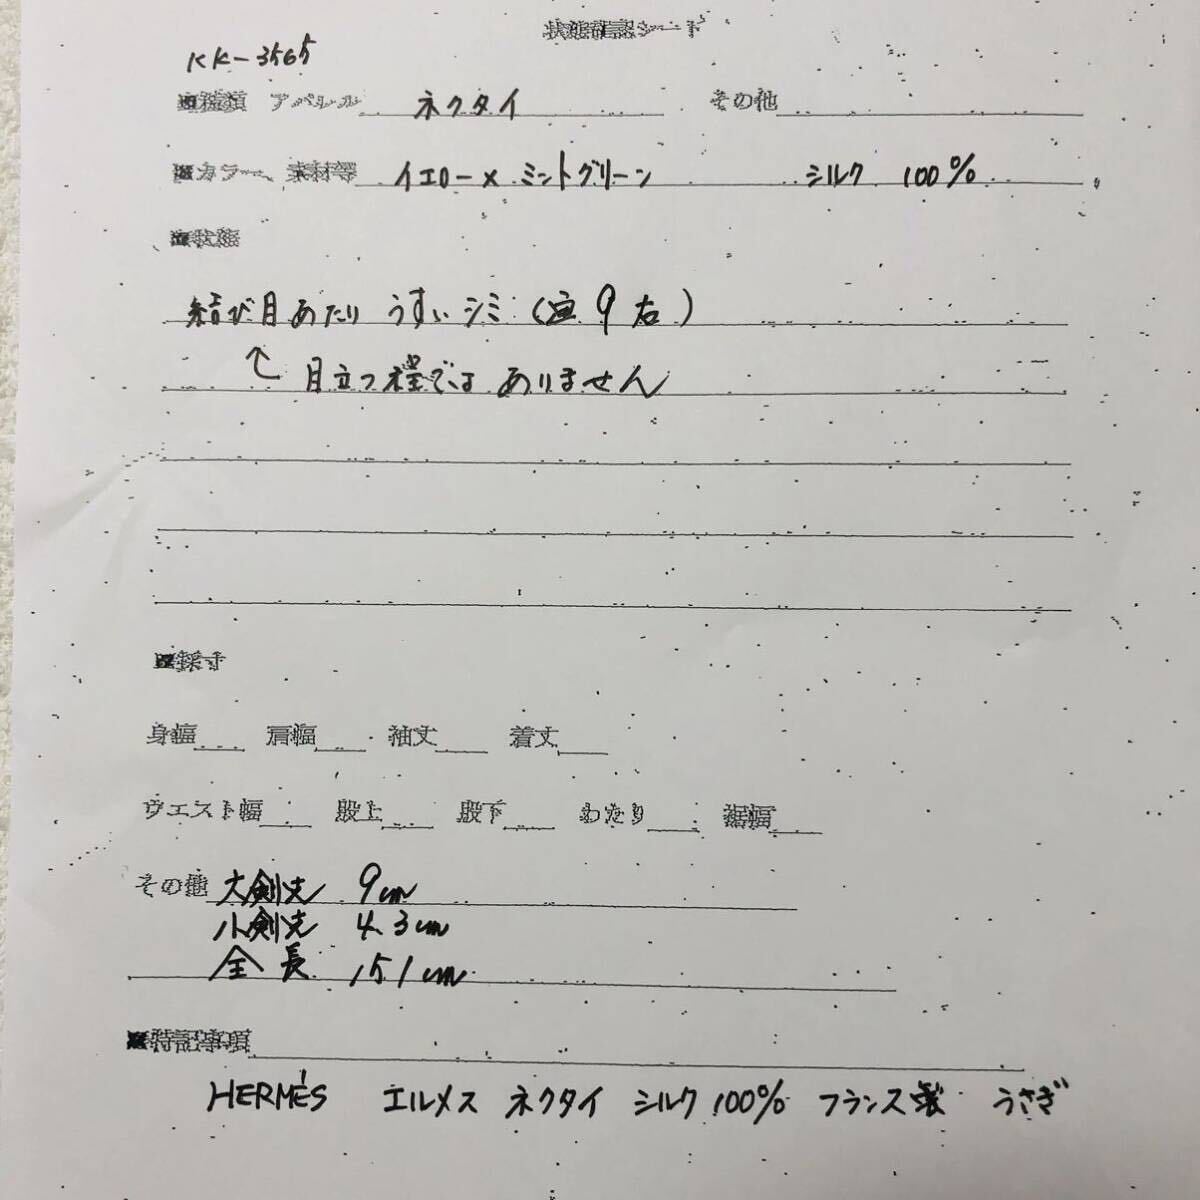 状態確認シート
KK-3565
■種類 アパレル ネクタイ その他
■カラー、素材等 イエロー×ミントグリーン シルク 100%
■状態
結び目あたり うすいシミ (画9右)
↑ 目立つ程ではありません
■採寸
身幅 肩幅 袖丈 着丈
ウエスト幅 股上 股下 わたり 裾幅
その他 大剣先 9cm
小剣先 4.3cm
全長 151cm
■特記事項
HERMÈS エルメス ネクタイ シルク100% フランス製 うさぎ